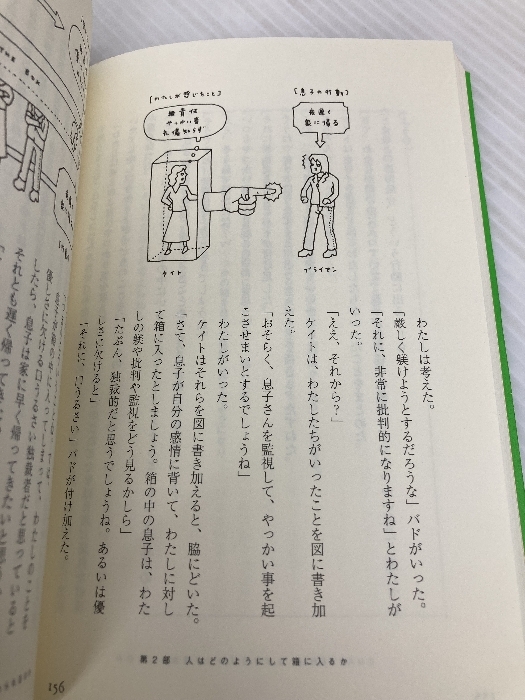 [わたしが感じたこと]
無責任
やっかい者
礼儀知らず
[息子の行動]
夜遅く
家に帰る
ケイト
ブライアン
わたしは考えた。
「厳しく躾けようとするだろうな」バドがいった。
「それに、非常に批判的になりますね」とわたしが
いった。
「ええ、それから?」
ケイトは、わたしたちがいったことを図に書き加
えた。
「おそらく、息子さんを監視して、やっかい事を起
こさせまいとするでしょうね」
わたしがいった。
ケイトはそれらを図に書き加えると、脇にどいた。
「さて、息子が自分の感情に背いて、わたしに対し
て箱に入ったとしましょう。箱の中の息子は、わた
しの躾や批判や監視をどう見るかしら」
「たぶん、独裁的だと思うでしょうね。あるいは優
しさに欠けると」
「それに、口うるさい」バドが付け加えた。
したら、息子は家に早く帰って
それとも遅く帰って
第2部 人はどのようにして箱に入るか
156